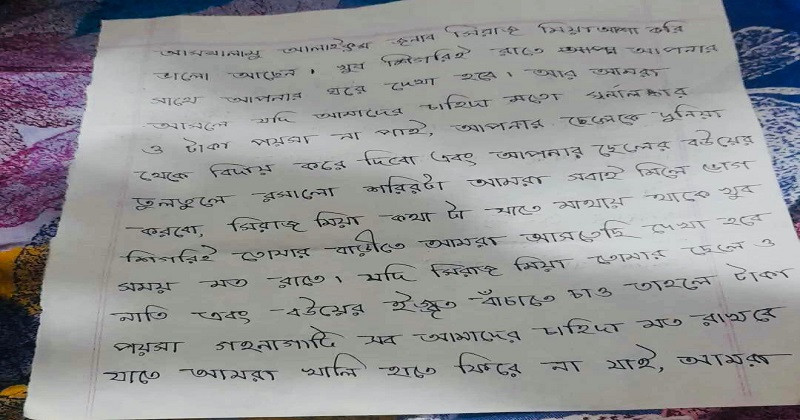 আসসালামু আলাইকুম জনাব সিরাজ মিয়া আশা করি
ভালো আছেন। খুব শিগরিই রাতে আপনার
সাথে আপনার ঘরে দেখা হবে। আর আমরা
আসলে যদি আমাদের চাহিদা মতো স্বর্নালংকার
ও টাকা পয়সা না পাই, আপনার ছেলেকে দুনিয়া
থেকে বিদায় করে দিবো এবং আপনার ছেলের বউয়ের
তুলতুলে রসালো শরিরটা আমরা সবাই মিলে ভোগ
করবো, সিরাজ মিয়া কথা টা যাতে মাথায় থাকে খুব
শিগরিই তোমার বাড়ীতে আমরা আসতেছি দেখা হবে
সময় মত রাতে। যদি সিরাজ মিয়া তোমার ছেলে ও
নাতি এবং বউয়ের ইজ্জত বাঁচাতে চাও তাহলে টাকা
পয়সা গহনাগাটি সব আমাদের চাহিদা মত রাখবে
যাতে আমরা খালি হাতে ফিরে না যাই, আমরা